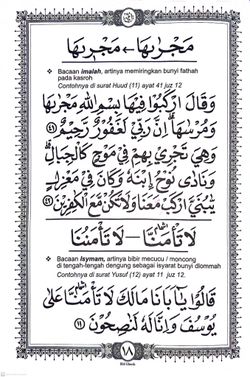 مَجْرٰىهَا ← مَجْرٰىهَا
❖ Bacaan imalah, artinya memiringkan bunyi fathah
pada kasroh
Contohnya di surat Huud (11) ayat 41 juz 12
وَقَالَ ارْكَبُوْا فِيْهَا بِسْمِ اللّٰهِ مَجْرٰىهَا
وَمُرْسٰىهَا ۗ اِنَّ رَبِّيْ لَغَفُوْرٌ رَّحِيْمٌ ٤١
وَهِيَ تَجْرِيْ بِهِمْ فِيْ مَوْجٍ كَالْجِبَالِ ۗ
وَنَادٰى نُوْحُ ۨابْنَهٗ وَكَانَ فِيْ مَعْزِلٍ
يّٰبُنَيَّ ارْكَبْ مَّعَنَا وَلَا تَكُنْ مَّعَ الْكٰفِرِيْنَ ٤٢
لَا تَأْمَنَّا — لَا تَأْمُنُنَا
❖ Bacaan Isymam, artinya bibir mecucu / moncong
di tengah-tengah dengung sebagai isyarat bunyi dlommah
Contohnya di surat Yusuf (12) ayat 11 juz 12.
قَالُوْا يٰٓاَبَانَا مَالَكَ لَا تَأْمَنَّا عَلٰى
يُوْسُفَ وَاِنَّا لَهٗ لَنٰصِحُوْنَ ١١
١٨